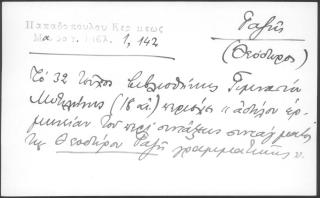 Παπαδοπούλου Κεραμεως
Μαυρογ. Βιβλ. 1, 142
Γαζῆς
(Θεόδωρος)
Τὸ 32 τεῦχος βιβλιοθήκης Γυμνασίου
Μυτιλήνης (18 αἰ.) περιέχει "ἀδήλου ἑρ-
μηνείαν τοῦ περὶ συντάξεως συντάγματος
τῆς Θεοδώρου Γαζῆ γραμματικῆς".